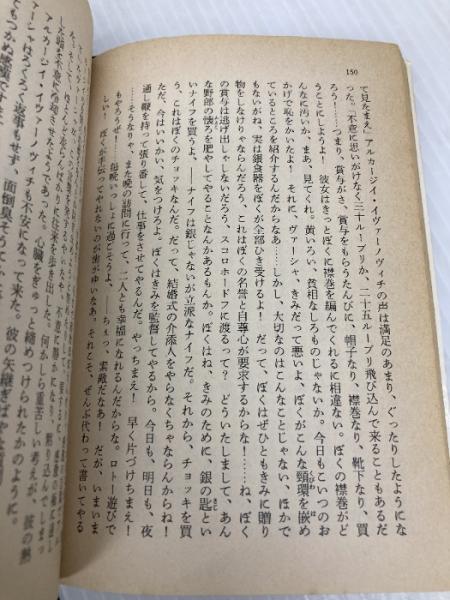 150
て見たまえ」アルカージイ・イヴァーノヴィチの声は満足のあまり、ぐったりしたようにな
った。「不意に思いがけなく三十ルーブリか、二十五ルーブリ飛び込んで来ることもあるだ
ろう！……つまり、賞与がさ、賞与をもらうたんびに、帽子なり、襟巻なり、靴下なり、買
うことにしようよ！　彼女はきっとぼくに襟巻を編んでくれるに相違ない。ぼくの襟巻がど
んなに汚いか、まあ、見てくれ。黄いろい、貧相なしろものじゃないか。今日もこいつのお
かげで恥をかいたよ！　それに、ヴァーシャ、きみだって悪いよ、ぼくがこんな頸環を嵌め
ているところを紹介するんだからなあ……しかし、大切なのはこんなことじゃない、ほかで
もないがね、実は銀食器をぼくが全部ひき受けるよ！　だって、ぼくはぜひともきみに贈り
物をしなけりゃならんだろう、これはぼくの名誉と自尊心が要求するからな！……ね、ぼく
の賞与は逃げ出しゃしないだろう、スコロホードフに渡るって？　どういたしまして、あん
な野郎の懐ろを肥やしてやることなんかあるもんか。ぼくはね、きみのために、銀の匙とい
いナイフを買うよ、――ナイフは銀じゃないが立派なナイフだ。それから、チョッキを買
う、これはぼくのチョッキなんだ。だって、結婚式の介添人をやらなくちゃならんからね！
ただ、今はいいかい、気をつけろよ。ぼくはきみを監督してやるから。今日も、明日も、夜
通し鞭を持って張り番して、仕事をさせてやるんだ。やっちまえ！　早く片づけちまえ！
……そうなりゃ、また晩の訪問に行って、二人とも幸福になれるんだからな。ロトー遊びで
もやろうぜ！……毎晩いっしょに過ごそうよ、――ちょっ、素敵だなあ！　だが、いまいま
しい！　ぼくが手伝ってやれないのが歯がゆいなあ。それこそ、ぜんぶ代わって書いてやる
アルカージイ・イヴァーノヴィチも不安になって来た。彼の矢継ぎばやな